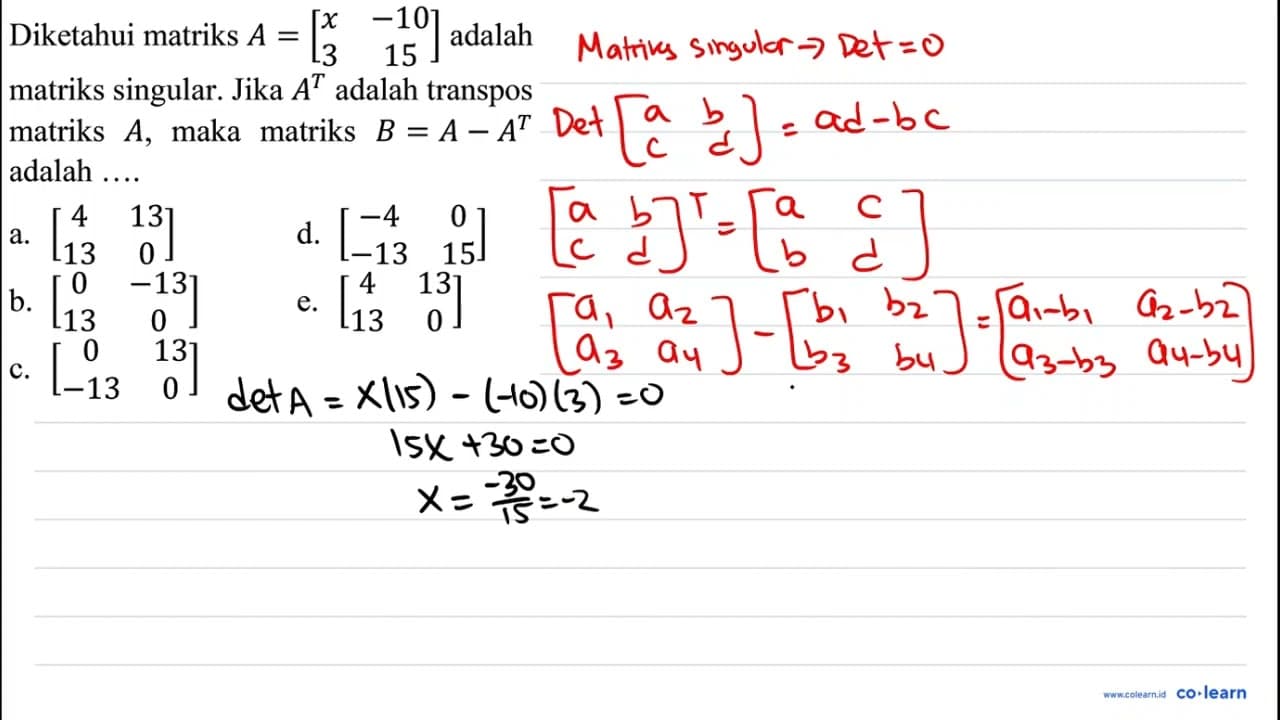 Diketahui matriks A = [x −10; 3 15] adalah
matriks singular. Jika Aᵀ adalah transpos
matriks A, maka matriks B = A − Aᵀ
adalah ....
a. [4 13; 13 0]
b. [0 −13; 13 0]
c. [0 13; −13 0]
d. [−4 0; −13 15]
e. [4 13; 13 0]
Matriks Singular → Det = 0
Det [a b; c d] = ad-bc
[a b; c d]ᵀ = [a c; b d]
[a₁ a₂; a₃ a₄] - [b₁ b₂; b₃ b₄] = [a₁-b₁ a₂-b₂; a₃-b₃ a₄-b₄]
det A = x(15) - (-10)(3) = 0
15x + 30 = 0
x = -30/15 = -2
www.colearn.id co·learn